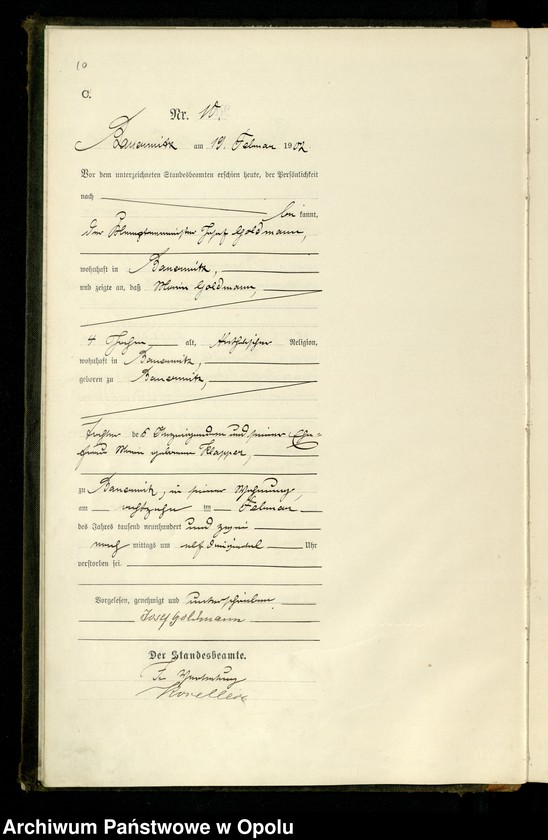 10
C.
Nr. 10.
Bauerwitz am 19. Februar 1902.
Vor dem unterzeichneten Standesbeamten erschien heute, der Persönlichkeit
nach
bekannt,
der Josef Goldmann,
wohnhaft in Bauerwitz,
und zeigte an, daß Maria Goldmann,
4 Jahre alt, katholischer Religion,
wohnhaft in Bauerwitz,
geboren zu Bauerwitz,
Tochter des Anzeigenden und seiner Ehe-
frau Maria geborene Klapper,
zu Bauerwitz, in seiner Wohnung,
am achtzehn ten Februar
des Jahres tausend neunhundert und zwei
nach mittags um elf dreiviertel Uhr
verstorben sei.
Vorgelesen, genehmigt und unterschrieben
Josef Goldmann
Der Standesbeamte.
In Vertretung
Archiwum Państwowe w Opolu